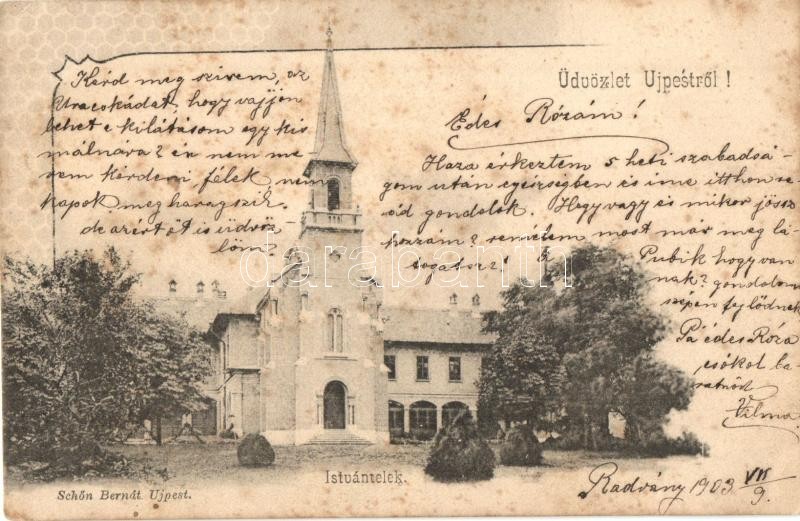 Üdvözlet Ujpestről !
Kérd meg szivem, az
Uracskádat, hogy vajjon
lehet e kilátásom egy kis
málnára? én nem me
rem kérdeni félek, nem
kapok, meg haragszik.
de azért őt is üdvöz-
löm.
Édes Rózám!
Haza érkeztem 5 heti szabadsá-
gom után egészségben és ime itthon re-
ád gondolok. Hogy vagy és mikor jössz
hozzám? remélem most már meg lá-
togatsz!
Pubik hogy van
nak? gondolom
szépen fejlődnek
Pá édes Róza
csókol ba-
rátnőd
Vilma
Radvány 1903 VII/9.
Istvántelek.
Schön Bernát Ujpest.
darabanth